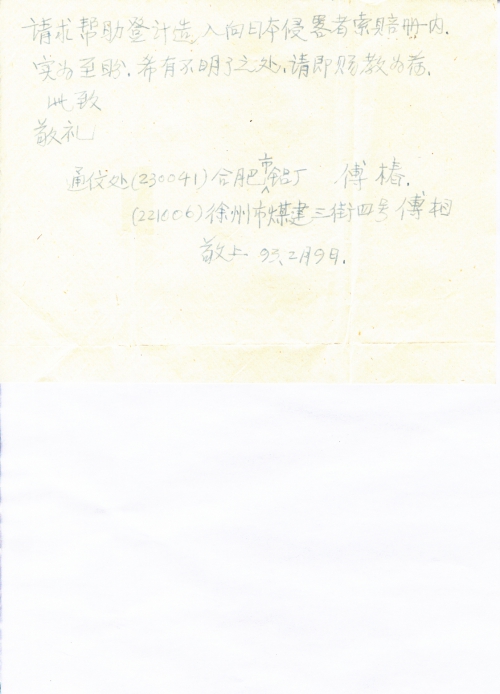 请求帮助登计造入向日本侵畧者索賠册内.
实为至盼.希有不明了之处,请即赐教为荷.
此致
敬礼
通仪处(230041)合肥市铝厂 傅椿.
(221006)徐州市煤建三街四号傅相
敬上 93.2月9日.